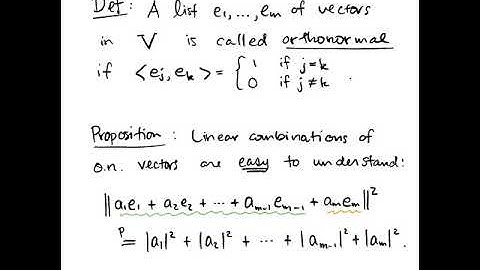 Def: A list e₁,...,eₘ of vectors
in V is called orthonormal
if <eⱼ, eₖ> = { 1 if j=k
0 if j≠k .
Proposition: Linear combinations of
o.n. vectors are easy to understand:
‖a₁e₁ + a₂e₂ + ··· + aₘ₋₁eₘ₋₁ + aₘeₘ‖²
P
= |a₁|² + |a₂|² + ··· + |aₘ₋₁|² + |aₘ|².